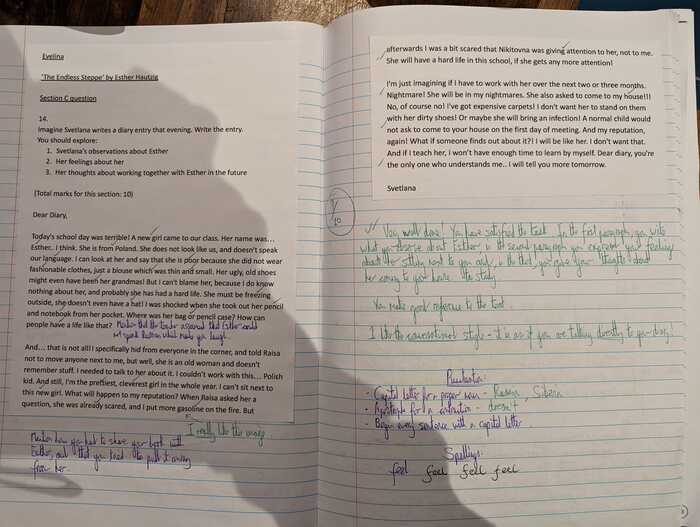 Evelina
'The Endless Steppe' by Esther Hautzig
Section C question
14.
Imagine Svetlana writes a diary entry that evening. Write the entry.
You should explore:
1. Svetlana's observations about Esther
2. Her feelings about her
3. Her thoughts about working together with Esther in the future
(Total marks for this section: 10)
Dear Diary,
Today's school day was terrible! A new girl came to our class. Her name was…
Esther.. I think. She is from Poland. She does not look like us, and doesn't speak
our language. I can look at her and say that she is poor because she did not wear
fashionable clothes, just a blouse which was thin and small. Her ugly, old shoes
might even have beeh her grandmas! But I can't blame her, because I do know
nothing about her, and probably she has had a hard life. She must be freezing
outside, she doesn't even have a hat! I was shocked when she took out her pencil
and notebook from her pocket. Where was her bag or pencil case? How can
people have a life like that? Mention that the teacher assumed that Esther could
not speak Russian which made you laugh.
And…. that is not all! I specifically hid from everyone in the corner, and told Raisa
not to move anyone next to me, but well, she is an old woman and doesn't
remember stuff. I needed to talk to her about it. I couldn't work with this... Polish
kid. And still, I'm the prettiest, cleverest girl in the whole year. I can't sit next to
this new girl. What will happen to my reputation? When Raisa asked her a
question, she was already scared, and I put more gasoline on the fire. But
I really like this image.
Mention how you had to share your book with
Esther, and that you had to pull it away
from her.
afterwards I was a bit scared that Nikitovna was giving attention to her, not to me.
She will have a hard life in this school, if she gets any more attention!
I'm just imagining if I have to work with her over the next two or three months.
Nightmare! She will be in my nightmares. She also asked to come to my house!!!
No, of course no! I've got expensive carpets! I don't want her to stand on them
with her dirty shoes! Or maybe she will bring an infection! A normal child would
not ask to come to your house on the first day of meeting. And my reputation,
again! What if someone finds out about it?! I will be like her. I don't want that.
And if I teach her, I won't have enough time to learn by myself. Dear diary, you're
the only one who understands me.. I will tell you more tomorrow.
Svetlana
10
Very well done! You have satisfied the task. In the first paragraph, you write
what you observe about Esther, in the second paragraph you express your feelings
about her sitting next to you and, in the third, you give your thoughts about
her coming to your house to study.
You make good reference to the text.
I like the conversational style - it is as if you are talking directly to your diary!
Punctuation
- Capital letter for a proper noun - Raisa, Siberia
- Apostrophe for a contraction - doesn't
- Begin every sentence with a capital letter
Spellings
feel feel feel feel